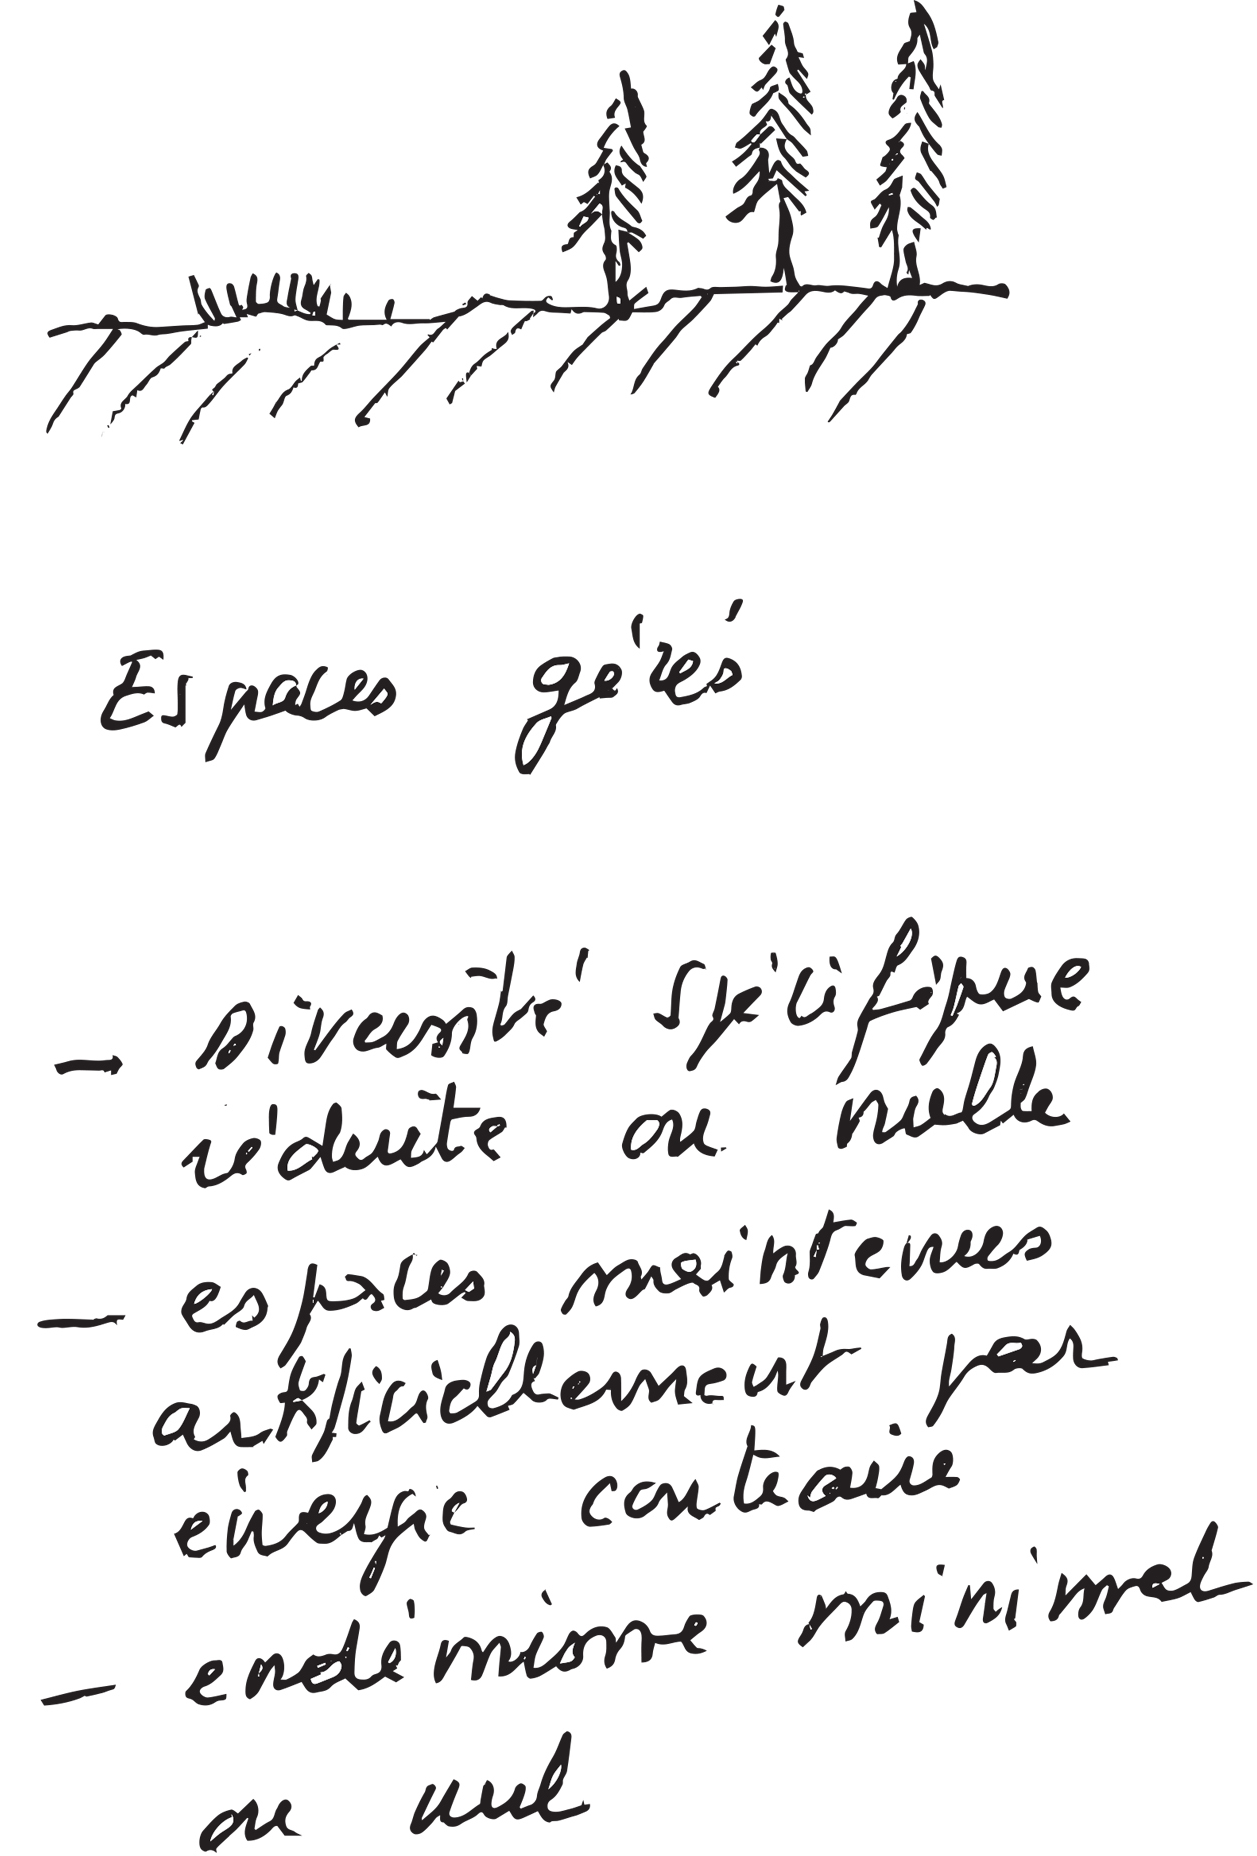 Espaces gérés
– Diversité spécifique
réduite ou nulle
– espaces maintenues
artificiellement par
énergie contraire
– endémisme minimal
ou nul